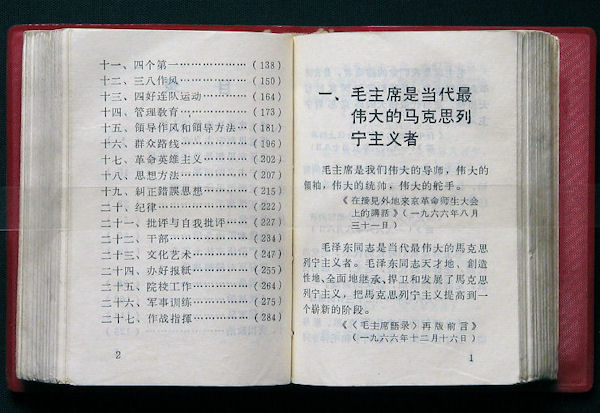 十一、四个第一………………(138)
十二、三八作风………………(150)
十三、四好连队运动…………(164)
十四、管理敎育………………(173)
十五、領导作风和領导方法…(181)
十六、群众路线………………(196)
十七、革命英雄主义…………(202)
十八、思想方法………………(207)
十九、糾正錯誤思想…………(215)
二十、纪律……………………(222)
二十一、批评与自我批评……(227)
二十二、干部…………………(234)
二十三、文化艺术……………(247)
二十四、办好报紙……………(255)
二十五、院校工作……………(264)
二十六、军事训练……………(275)
二十七、作战指揮……………(284)
2
一、毛主席是当代最
伟大的马克思列
宁主义者
毛主席是我们伟大的导师，伟大的
領袖，伟大的统帅，伟大的舵手。
《在接見外地来京革命师生大会
上的講話》(一九六六年八月
三十一日)
毛泽东同志是当代最伟大的馬克思
列宁主义者。毛泽东同志天才地、創造
性地、全面地继承、捍卫和发展了馬克思
列宁主义，把馬克思列宁主义提高到一
个崭新的阶段。
《〈毛主席語录〉再版前言》
(一九六六年十二月十六日)
1